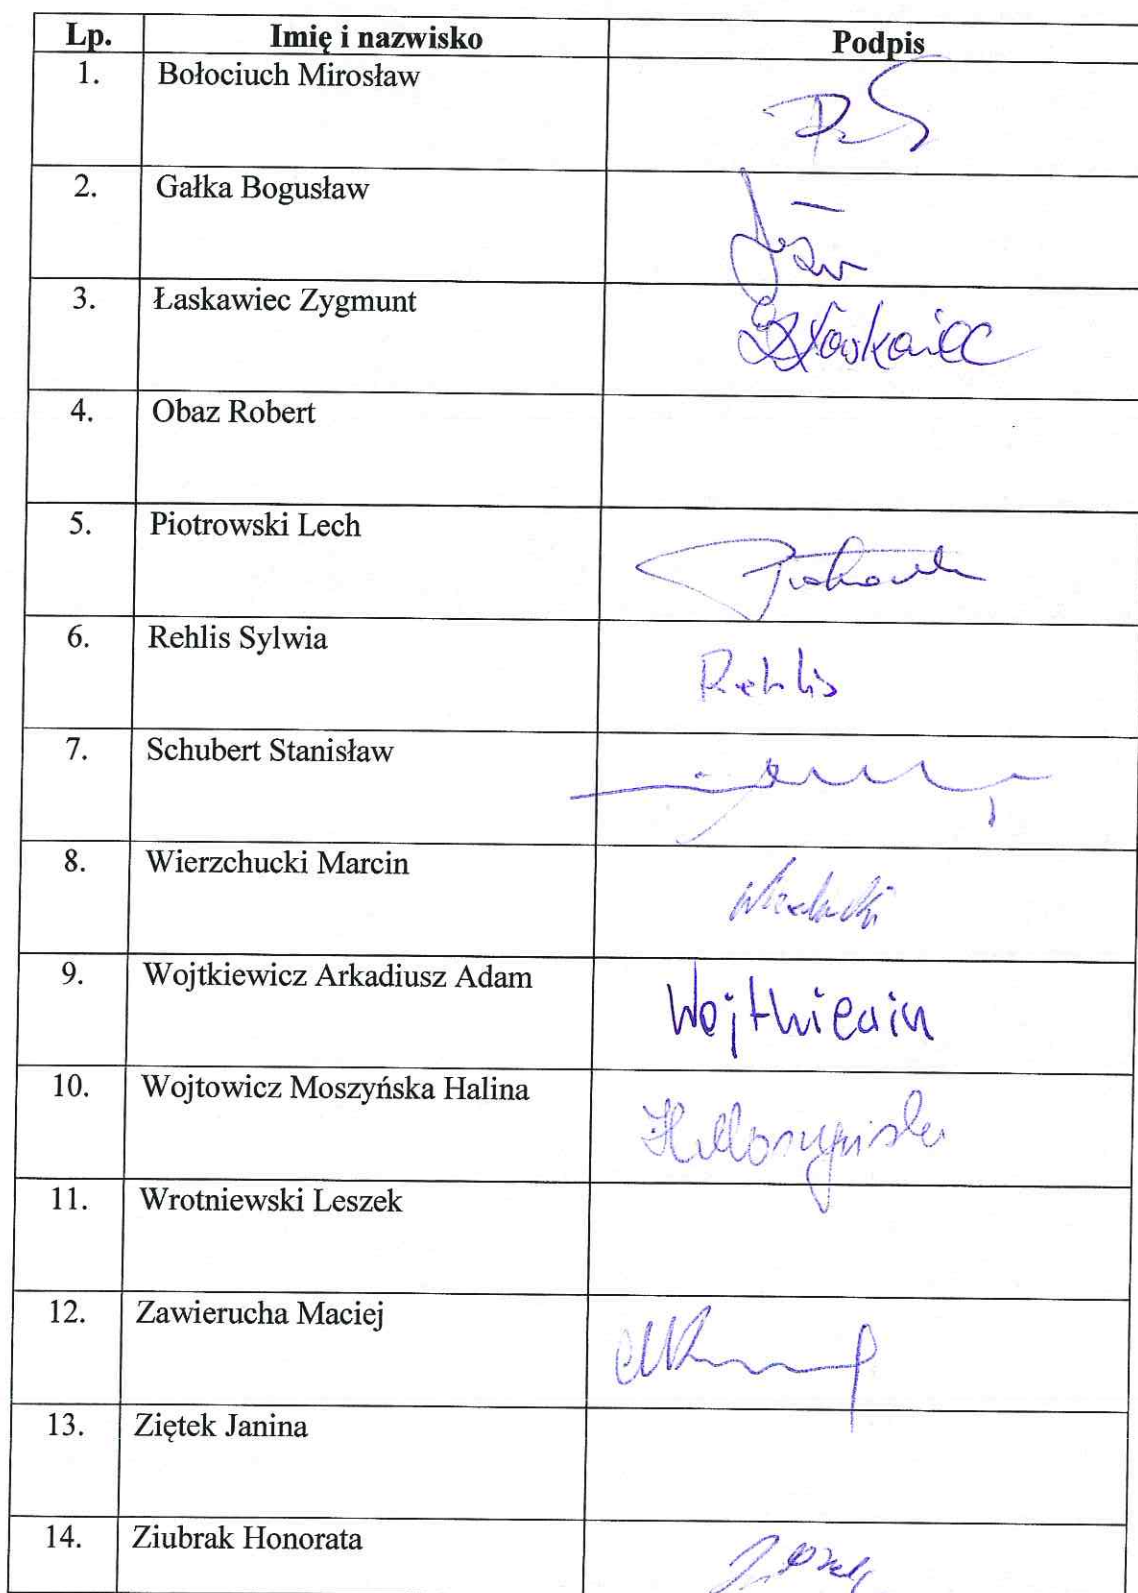 Lp. Imię i nazwisko Podpis
1. Bołociuch Mirosław
2. Gałka Bogusław
3. Łaskawiec Zygmunt
4. Obaz Robert
5. Piotrowski Lech
6. Rehlis Sylwia Rehlis
7. Schubert Stanisław
8. Wierzchucki Marcin
9. Wojtkiewicz Arkadiusz Adam
10. Wojtowicz Moszyńska Halina
11. Wrotniewski Leszek
12. Zawierucha Maciej
13. Ziętek Janina
14. Ziubrak Honorata